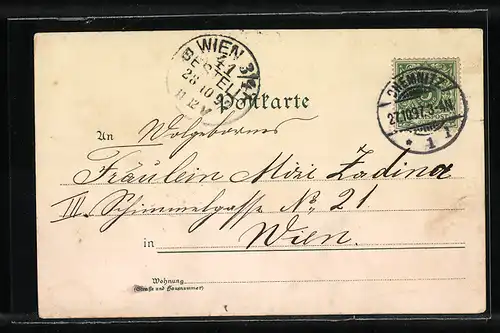 WIEN 3/4
41
BESTELLT
28.10.97
11.12 V
Postkarte
CHEMNITZ
27.10.97.3-4N
* 1 f
An Wolgeborenes
Fräulein Mizi Zadina
III. Schimmelgasse No. 21.
in Wien.
Wohnung
(Straße und Hausnummer)